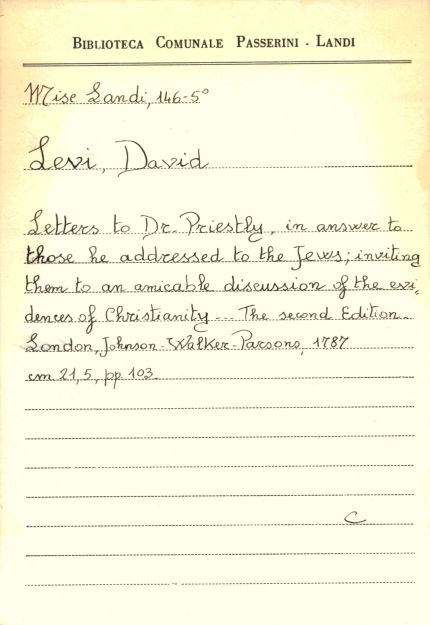 BIBLIOTECA COMUNALE PASSERINI - LANDI
Mise Landi, 146-5°
Levi, David
Letters to Dr. Priestly, in answer to
those he addressed to the Jews; inviting
them to an amicable discussion of the evi,
dences of Christianity... The second Edition.
London, Johnson-Walker-Parsons, 1787
cm. 21,5, pp 103.
C